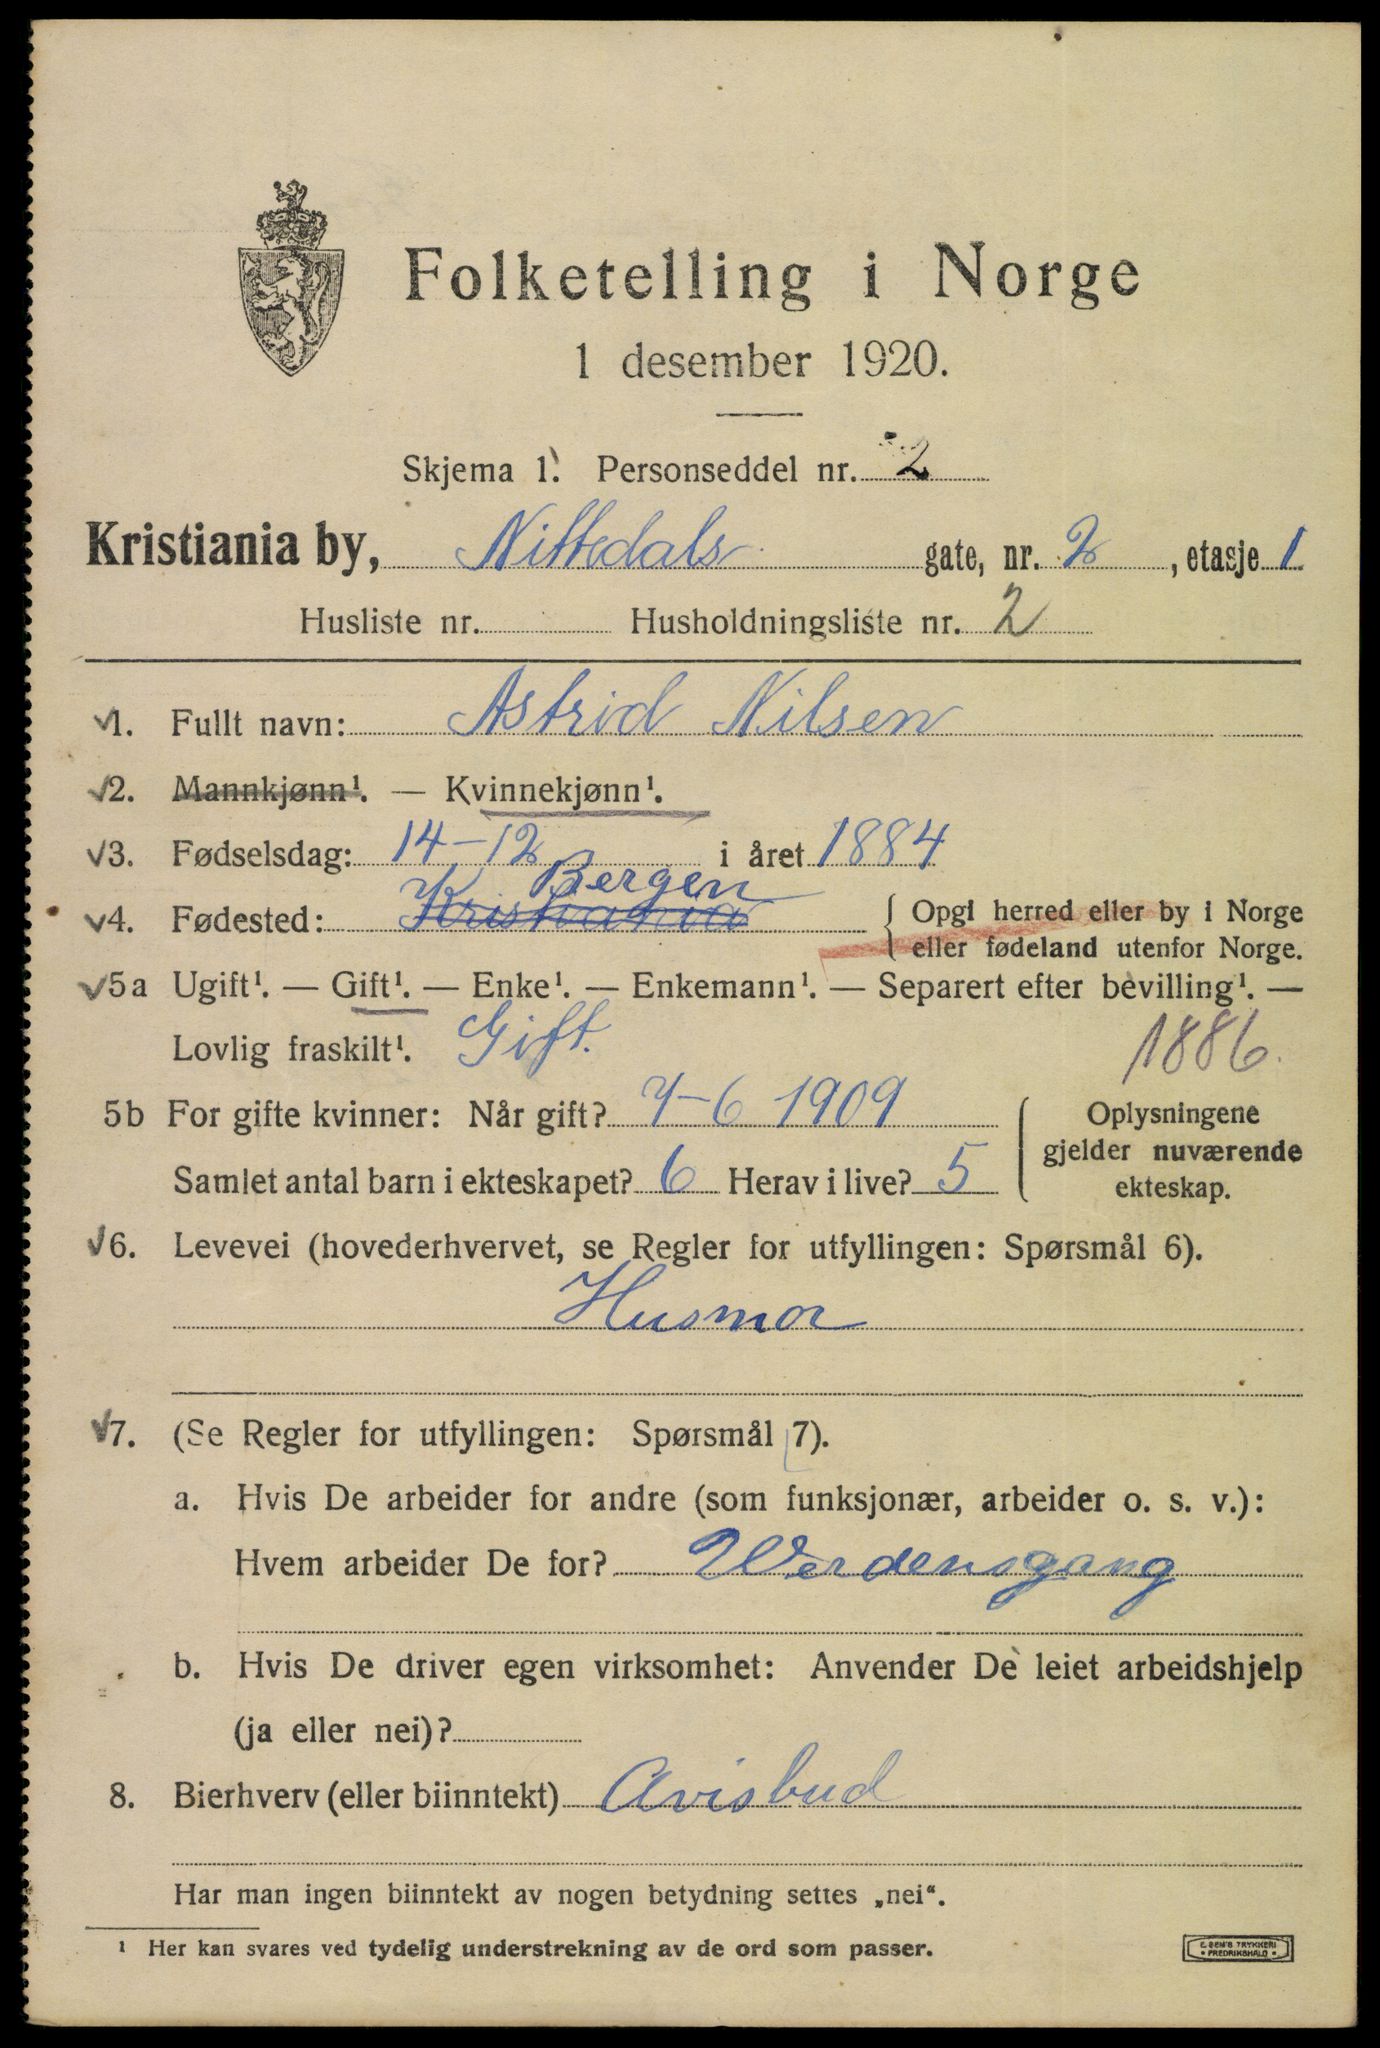 Folketelling i Norge
1 desember 1920.
Skjema 1. Personseddel nr. 2
Kristiania by, Nittedals gate, nr. 2, etasje 1
Husliste nr. Husholdningsliste nr. 2
1. Fullt navn: Astrid Nilsen
2. Mannkjønn¹. — Kvinnekjønn¹.
3. Fødselsdag: 14-12 i året 1884
Bergen
4. Fødested: Kristiania { Opgi herred eller by i Norge
eller fødeland utenfor Norge.
5a Ugift¹. — Gift¹. — Enke¹. — Enkemann¹. — Separert efter bevilling¹. —
Lovlig fraskilt¹. Gift. 1886.
5b For gifte kvinner: Når gift? 7-6 1909 Oplysningene
gjelder nuværende
Samlet antal barn i ekteskapet? 6 Herav i live? 5 ekteskap.
6. Levevei (hovederhvervet, se Regler for utfyllingen: Spørsmål 6).
Husmor
7. (Se Regler for utfyllingen: Spørsmål 7).
a. Hvis De arbeider for andre (som funksjonær, arbeider o. s. v.):
Hvem arbeider De for? Werdensgang
b. Hvis De driver egen virksomhet: Anvender De leiet arbeidshjelp
(ja eller nei)?
8. Bierhverv (eller biinntekt) Avisbud
Har man ingen biinntekt av nogen betydning settes „nei“.
¹ Her kan svares ved tydelig understrekning av de ord som passer.
E. SEM'S TRYKKERI
FREDRIKSHALD